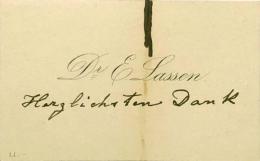 Dr E Lassen.
Herzlichsten Dank